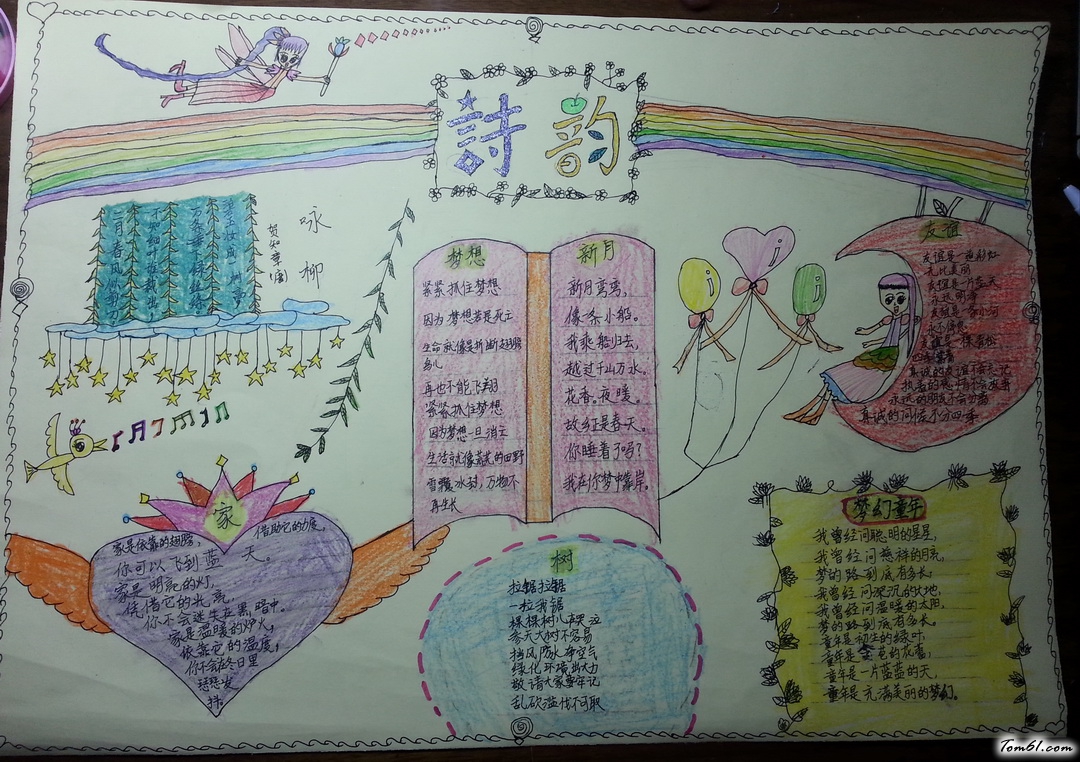 詩韵
咏柳
贺知章(唐)
二月春风似剪刀
梦想
紧紧抓住梦想
因为梦想若是死亡
生命就像是折断翅膀
鸟儿
再也不能飞翔
紧紧抓住梦想
因为梦想一旦消亡
生活就像荒芜的田野
雪覆冰封,万物不
再生长
新月
新月弯弯,
像条小船。
我乘船归去,
越过千山万水。
花香,夜暖。
故乡正是春天。
你睡着了吗?
我在你梦中靠岸。
友谊
友谊是一道彩虹
友谊是一片蓝天
真诚的友谊不会忘记
永远的朋友不会分离
真诚的问候不分四季
家
家是依靠的翅膀,
借助它的力度,
你可以飞到蓝天。
家是明亮的灯,
凭借它的光亮,
你不会迷失在黑暗中。
家是温暖的炉火,
依靠它的温度,
你不会在冬日里
瑟瑟发
抖。
树
拉锯拉锯
一拉我锯
棵棵树儿在哭泣
参天大树不容易
挡风防水净空气
绿化环境出大力
敬请大家要牢记
乱砍滥伐不可取
梦幻童年
我曾经问聪明的星星,
我曾经问慈祥的月亮,
梦的路到底有多长;
我曾经问深沉的大地,
我曾经问温暖的太阳,
梦的路到底有多长。
童年是初生的绿叶,
童年是含苞的花蕾,
童年是一片蓝蓝的天,
童年是充满美丽的梦幻。
Tom61.com